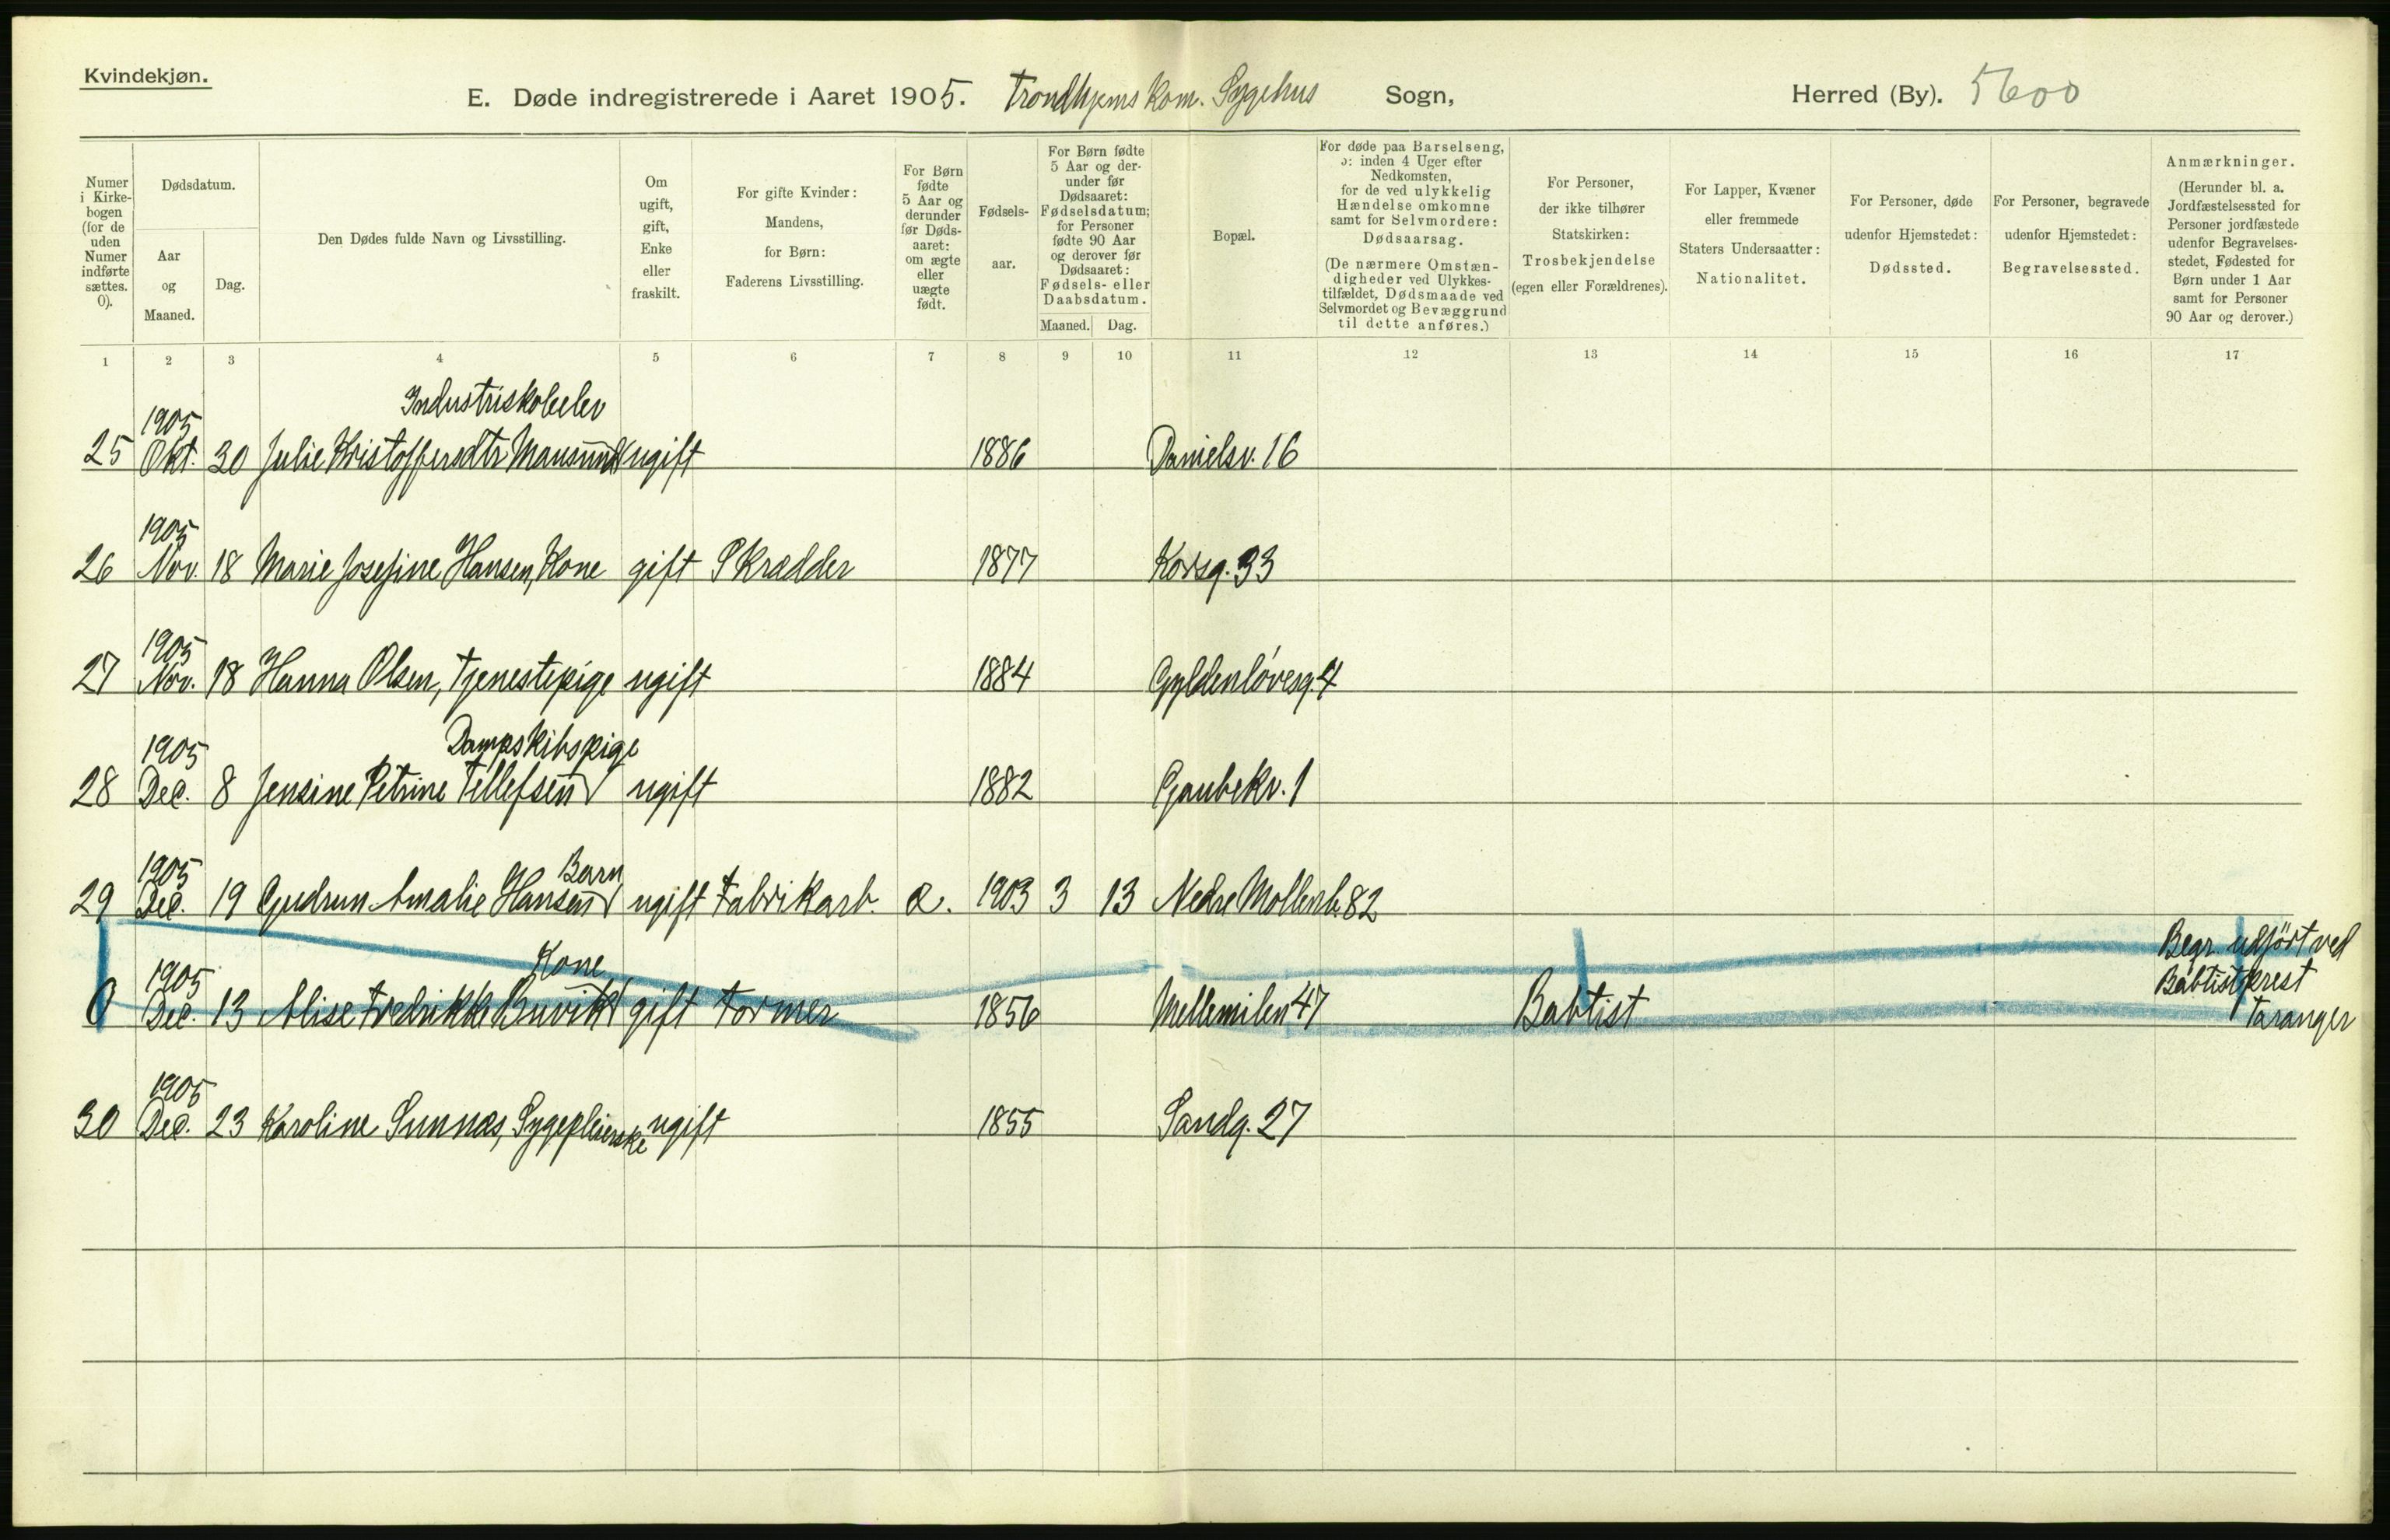 Kvindekjøn.
E. Døde indregistrerede i Aaret 1905. Trondhjems kom. Sygehus Sogn, Herred (By). 5600
Numer i Kirkebogen (for de uden Numer indførte sættes. 0).
Dødsdatum.
Aar og Maaned.
Dag.
Den Dødes fulde Navn og Livsstilling.
Om ugift, gift, Enke eller fraskilt.
For gifte Kvinder: Mandens, for Børn: Faderens Livsstilling.
For Børn fødte 5 Aar og derunder før Dødsaaret: om ægte eller uægte født.
Fødselsaar.
For Børn fødte 5 Aar og derunder før Dødsaaret: Fødselsdatum; for Personer fødte 90 Aar og derover før Dødsaaret: Fødsels- eller Daabsdatum.
Maaned. Dag.
Bopæl.
For døde paa Barselseng, ɔ: inden 4 Uger efter Nedkomsten, for de ved ulykkelig Hændelse omkomne samt for Selvmordere: Dødsaarsag. (De nærmere Omstændigheder ved Ulykkestilfældet, Dødsmaade ved Selvmordet og Bevæggrund til dette anføres.)
For Personer, der ikke tilhører Statskirken: Trosbekjendelse (egen eller Forældrenes).
For Lapper, Kvæner eller fremmede Staters Undersaatter: Nationalitet.
For Personer, døde udenfor Hjemstedet: Dødssted.
For Personer, begravede udenfor Hjemstedet: Begravelsessted.
Anmærkninger. (Herunder bl. a. Jordfæstelsessted for Personer jordfæstede udenfor Begravelsesstedet, Fødested for Børn under 1 Aar samt for Personer 90 Aar og derover.)
1 2 3 4 5 6 7 8 9 10 11 12 13 14 15 16 17
Industriskoleelev
1905
25 Okt. 30 Julie Kristoffersdtr Mausund ugift 1886 Danielsv. 16
1905
26 Nov. 18 Marie Josefine Hansen, Kone gift Skrædder 1877 Korsg. 33
1905
27 Nov. 18 Hanna Olsen, Tjenestepige ugift 1884 Gyldenløvesg. 4
Dampskibspige
1905
28 Dec. 8 Jensine Petrine Tellefsen ugift 1882 Gaubekv. 1
Barn
1905
29 Dec. 19 Gudrun Amalie Hansen ugift Fabrikarb. 1903 3 13 Nedre Møllenb. 82
Kone
1905
0 Dec. 13 Alise Fredrikke Buvik gift Former 1856 Mellemilen 47 Babtist
Begr. udført ved
Babtistprest
Taranger
1905
30 Dec. 23 Karoline Sunnæs, Sygepleierske ugift 1855 Sandg. 27